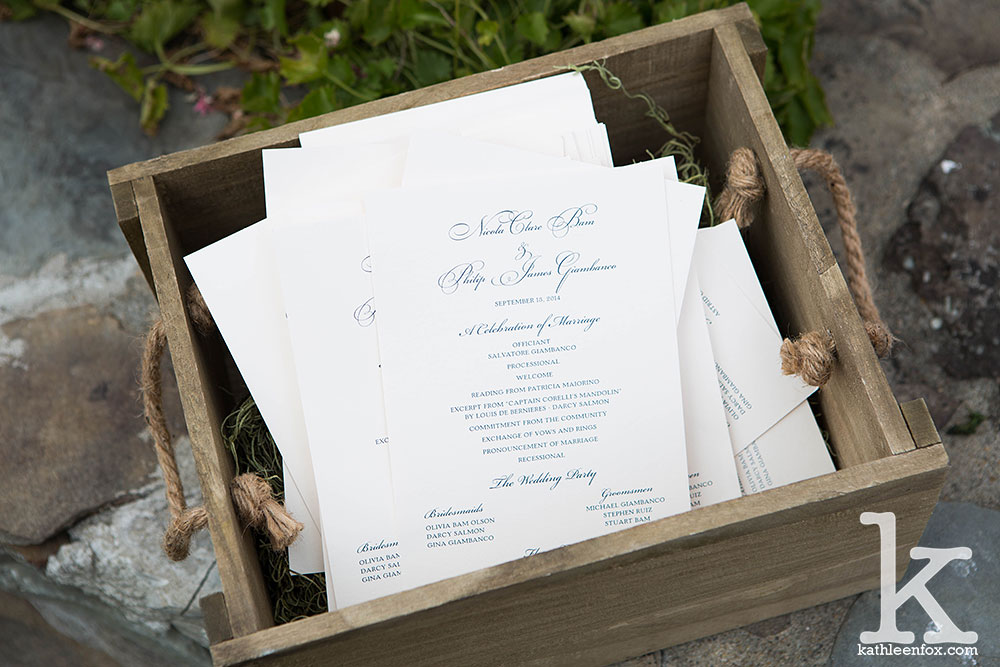 Nicola Clare Bam
&
Philip James Giambanco
SEPTEMBER 15, 2014
A Celebration of Marriage
OFFICIANT
SALVATORE GIAMBANCO
PROCESSIONAL
WELCOME
READING FROM PATRICIA MAIORINO
EXCERPT FROM "CAPTAIN CORELLI'S MANDOLIN"
BY LOUIS DE BERNIERES - DARCY SALMON
COMMITMENT FROM THE COMMUNITY
EXCHANGE OF VOWS AND RINGS
PRONOUNCEMENT OF MARRIAGE
RECESSIONAL
The Wedding Party
Bridesmaids
OLIVIA BAM OLSON
DARCY SALMON
GINA GIAMBANCO
Groomsmen
MICHAEL GIAMBANCO
STEPHEN RUIZ
STUART BAM
Bridesm
OLIVIA BAM
DARCY SAL
GINA GIA
k
kathleenfox.com